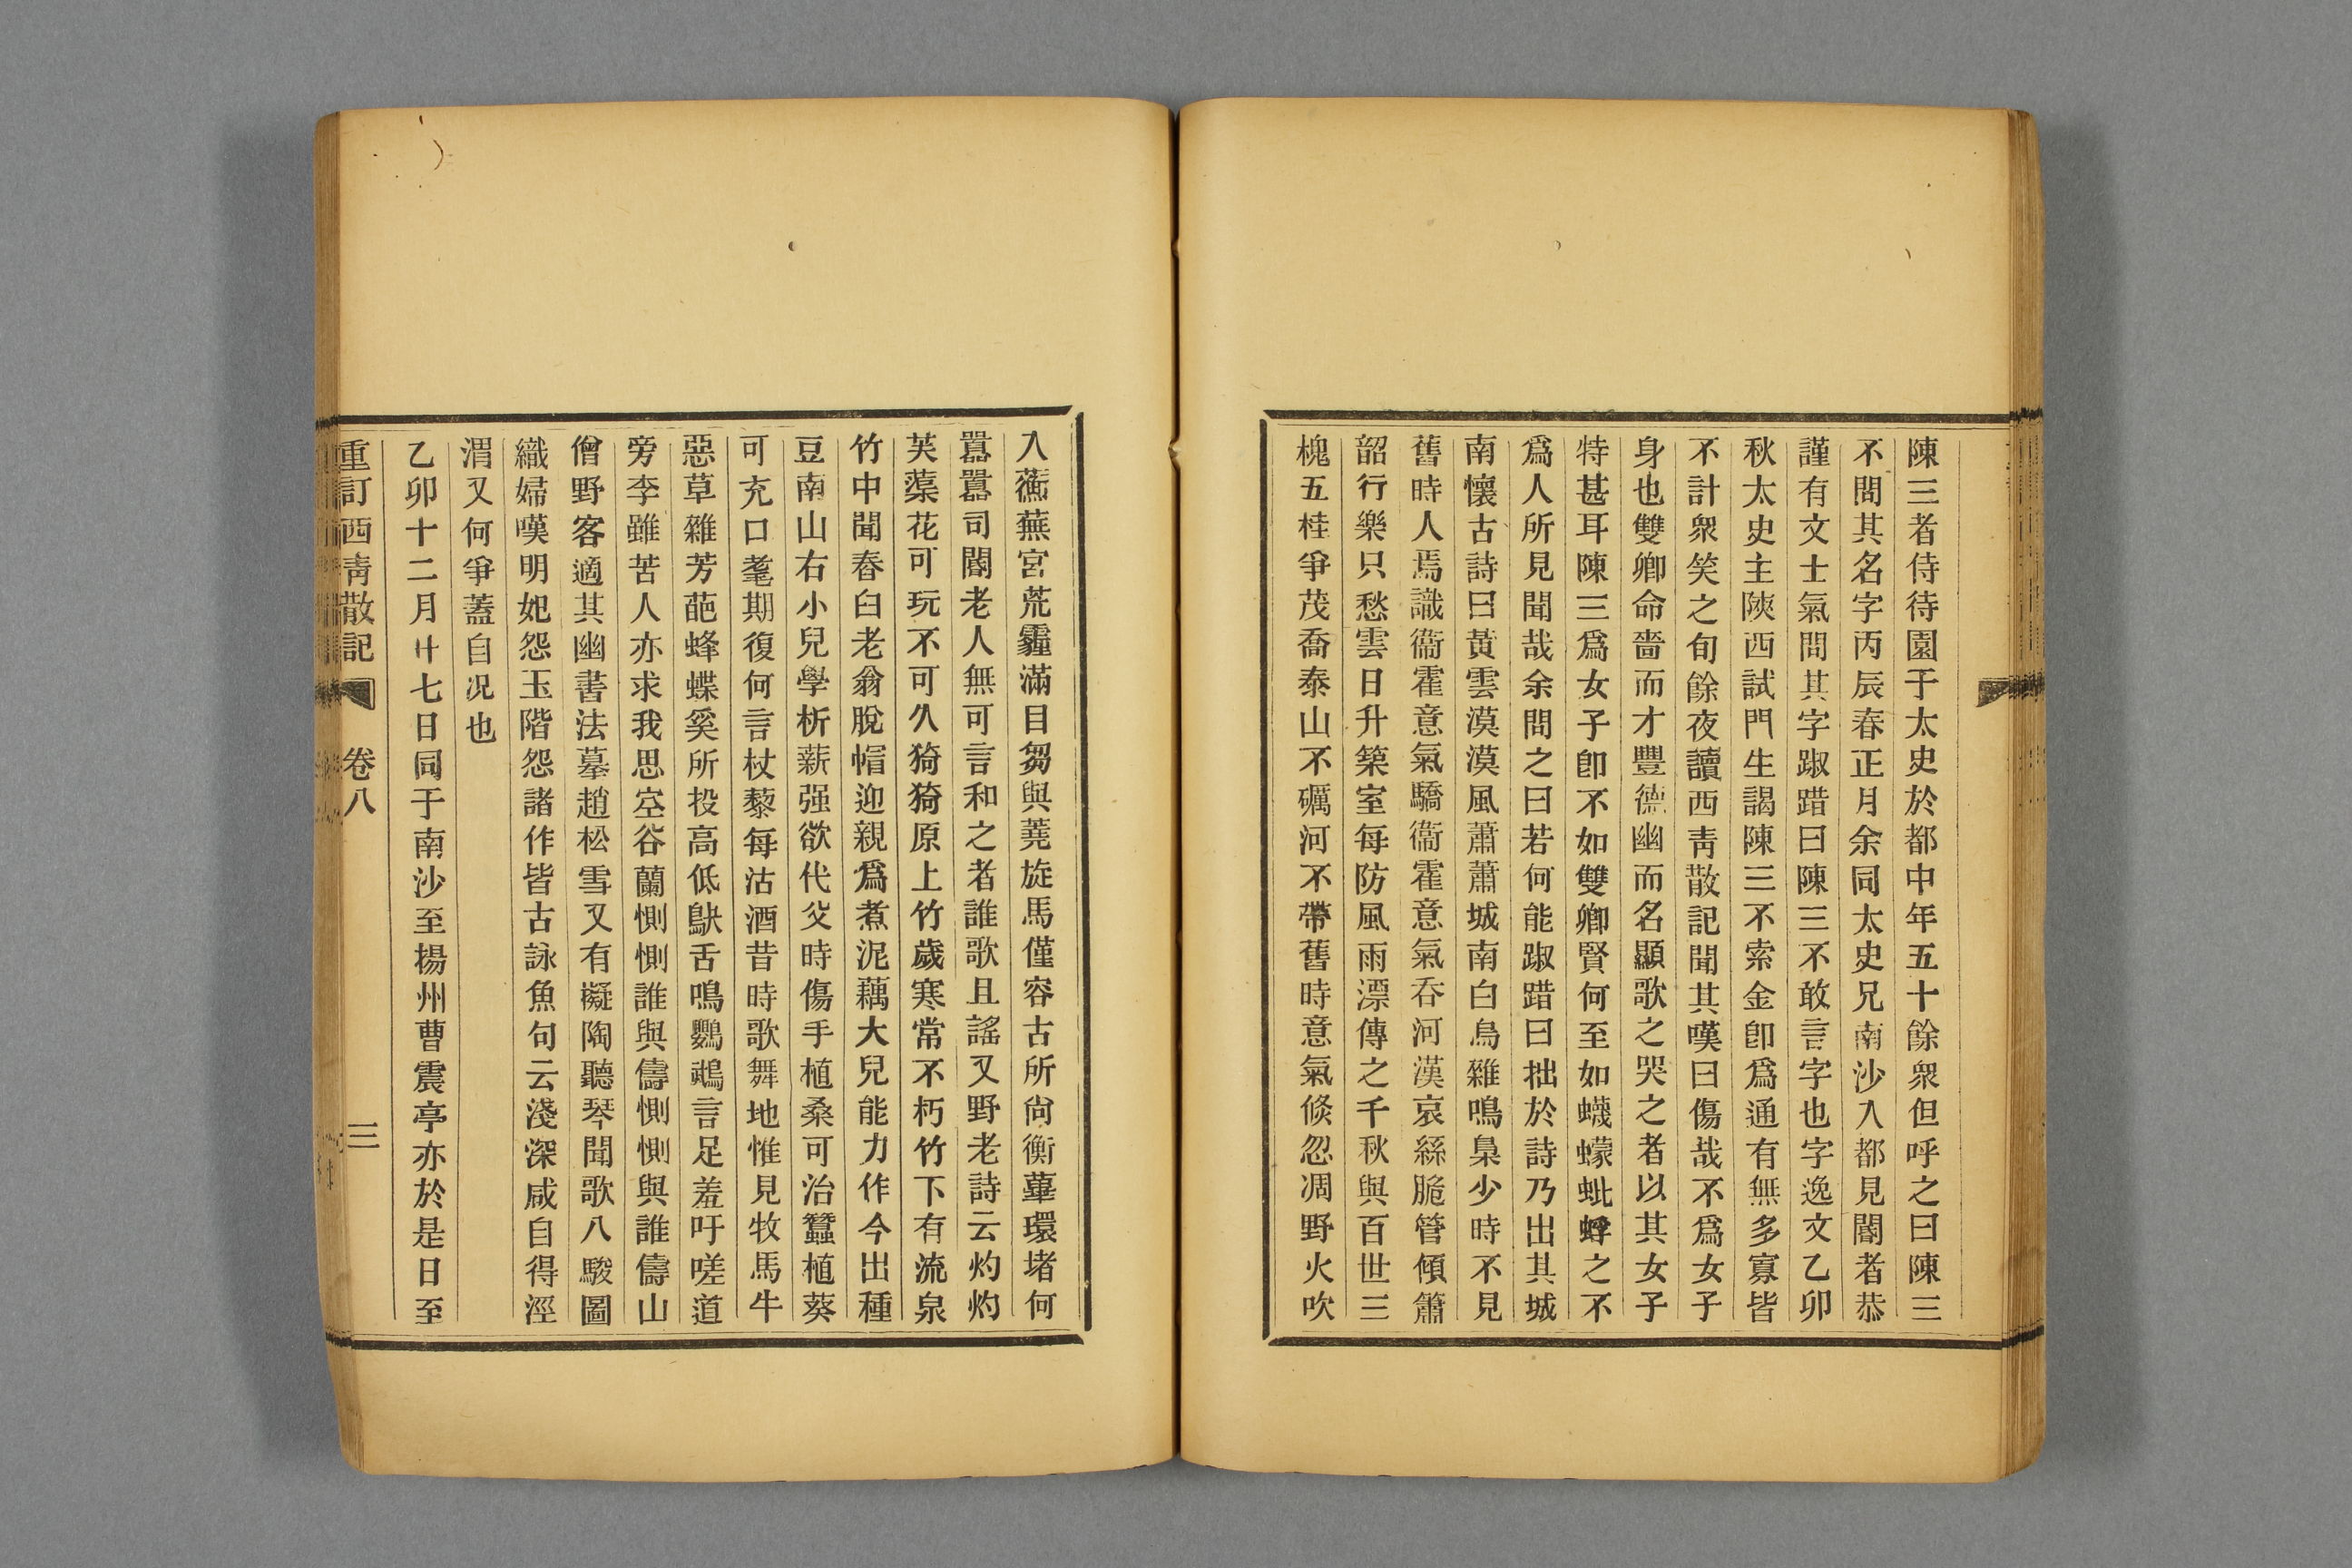 陳三者侍待園于太史於都中年五十餘衆但呼之曰陳三
不問其名字丙辰春正月余同太史兄南沙入都見閽者恭
謹有文士氣問其字踧踖曰陳三不敢言字也字逸文乙卯
秋太史主陜西試門生謁陳三不索金卽爲通有無多寡皆
不計衆笑之旬餘夜讀西靑散記聞其嘆曰傷哉不爲女子
身也雙卿命嗇而才豐德幽而名顯歌之哭之者以其女子
特甚耳陳三爲女子卽不如雙卿賢何至如蠛蠓蚍蜉之不
爲人所見聞哉余問之曰若何能踧踖曰拙於詩乃出其城
南懷古詩曰黃雲漠漠風蕭蕭城南白鳥雜鳴梟少時不見
舊時人焉識衞霍意氣驕衞霍意氣吞河漢哀絲脆管傾簫
韶行樂只愁雲日升築室每防風雨漂傳之千秋與百世三
槐五桂爭茂喬泰山不礪河不帶舊時意氣倏忽凋野火吹
入蘅蕪宮荒霾滿目芻與蕘旋馬僅容古所尙衡蓽環堵何
囂囂司閽老人無可言和之者誰歌且謠又野老詩云灼灼
芙蕖花可玩不可久猗猗原上竹歲寒常不朽竹下有流泉
竹中聞舂臼老翁脫帽迎親爲煮泥藕大兒能力作今出種
豆南山右小兒學析薪强欲代父時傷手植桑可治蠶植葵
可充口耄期復何言杖藜每沽酒昔時歌舞地惟見牧馬牛
惡草雜芳葩蜂蝶奚所投高低鴃舌鳴鸚鵡言足羞吁嗟道
旁李雖苦人亦求我思空谷蘭惻惻誰與儔惻惻與誰儔山
僧野客適其幽書法摹趙松雪又有擬陶聽琴聞歌八駿圖
織婦嘆明妃怨玉階怨諸作皆古詠魚句云淺深咸自得涇
渭又何爭蓋自況也
乙卯十二月廿七日同于南沙至揚州曹震亭亦於是日至
重訂西靑散記 卷八 三